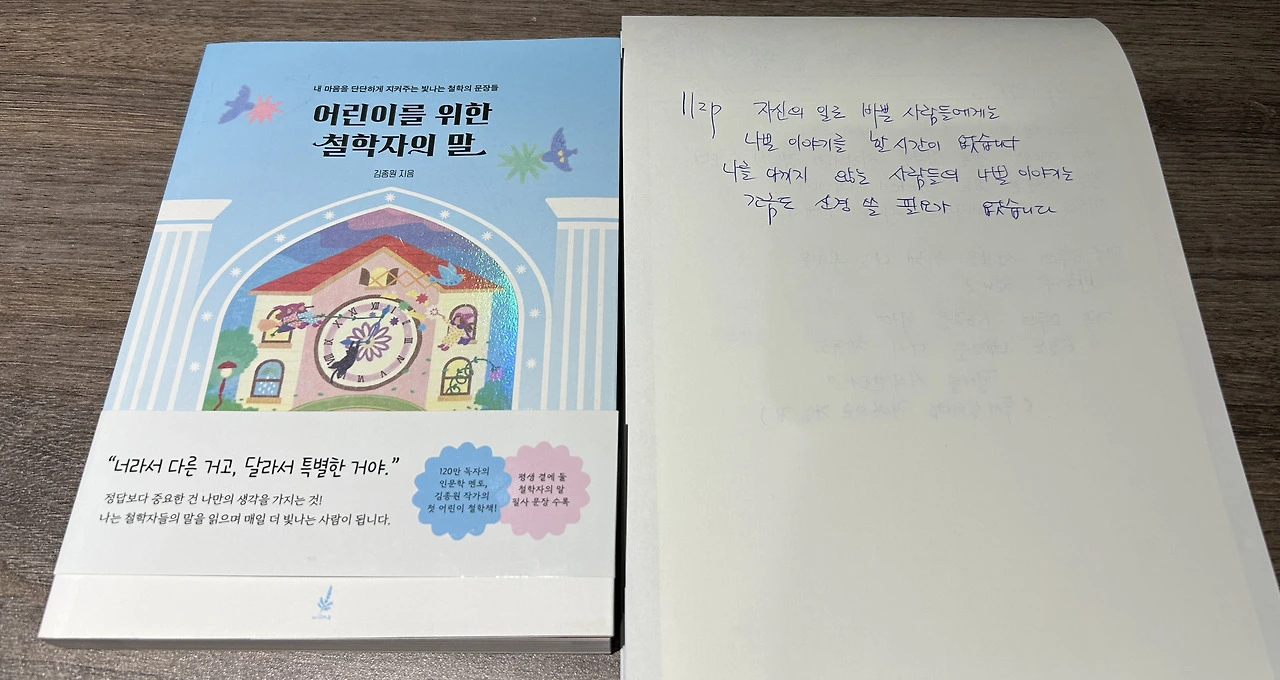 내 마음을 단단하게 지켜주는 빛나는 철학의 문장들
어린이를 위한
철학자의 말
김종원 지음
“너라서 다른 거고, 달라서 특별한 거야.”
정답보다 중요한 건 나만의 생각을 가지는 것!
나는 철학자들의 말을 읽으며 매일 더 빛나는 사람이 됩니다.
120만 독자의
인문학 멘토,
김종원 작가의
첫 어린이 철학책!
평생 곁에 둘
철학자의 말
필사 문장 수록
112p 자신의 일로 바쁠 사람들에게는
나쁜 이야기를 할 시간이 없습니다
나를 아끼지 않는 사람들의 나쁜 이야기는
조금도 신경 쓸 필요가 없습니다